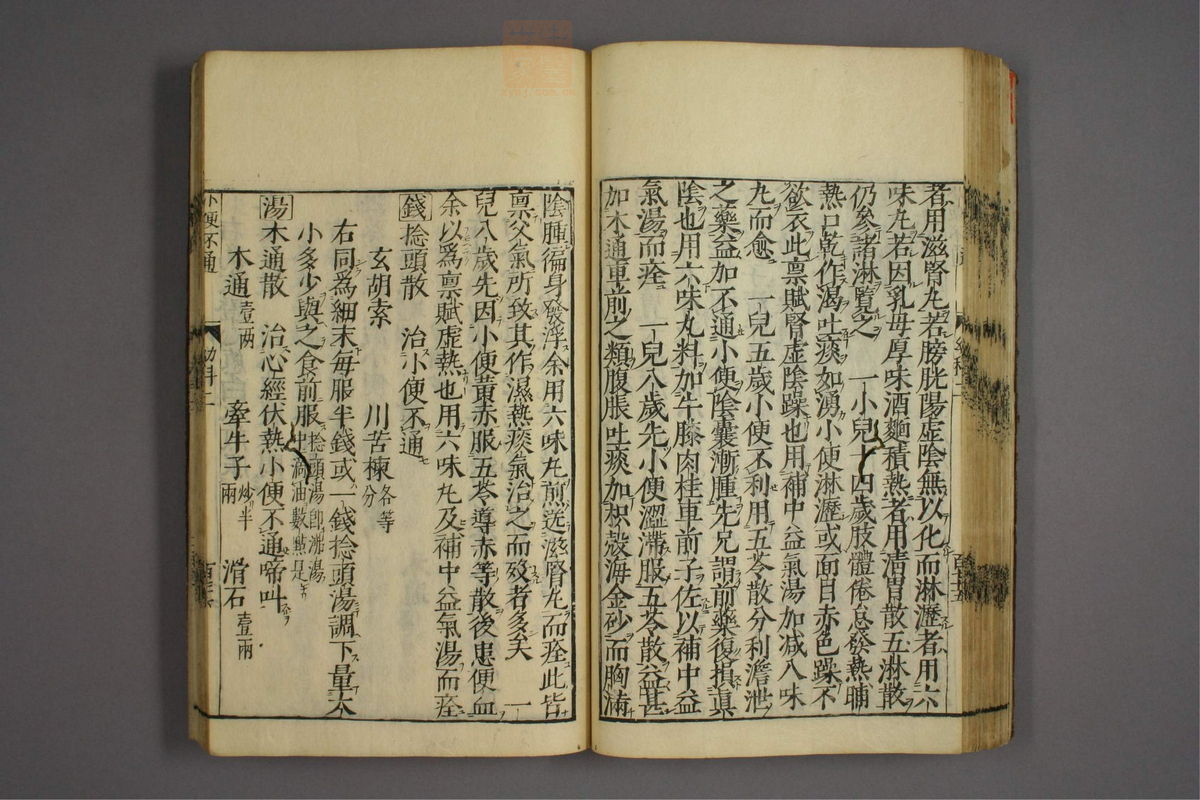 者用滋腎丸若膀胱陽虛陰無以化而淋瀝者用六
味丸若因乳母厚味酒麵積熱者用清胃散五淋散
仍參諸淋覽之　一小兒十四歲肢體倦怠發熱晡
熱口乾作渴吐痰如湧小便淋瀝或面目赤色躁不
欲衣此禀賦腎虛陰躁也用補中益氣湯加减八味
丸而愈　一兒五歲小便不利用五苓散分利澹泄
之藥益加不通小便陰囊漸腫先兄謂前藥復損眞
陰也用六味丸料加牛膝肉桂車前子佐以補中益
氣湯而痊　一兒八歲先小便澀滯服五苓散益甚
加木通車前之類腹脹吐痰加枳殼海金砂而胸滿
陰腫徧身發浮余用六味丸煎送滋腎丸而痊此皆
禀父氣所致其作濕熱痰氣治之而歿者多矣　一
兒八歲先因小便黄赤服五苓導赤等散後患便血
余以爲禀賦虛熱也用六味丸及補中益氣湯而痊
錢捻頭散　治小便不通
玄胡索　川苦楝各等分
右同爲細末每服半錢或一錢捻頭湯調下量大
小多少與之食前服捻頭湯卽沸湯中滴油數點是
湯木通散　治心經伏熱小便不通啼叫
木通壹兩　牽牛子炒半兩　滑石壹兩
小便不通
幼科二